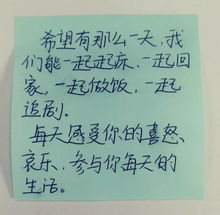 希望有那么一天，我
们能一起起床、一起回
家，一起做饭，一起
追剧。
每天感受你的喜怒、
哀乐，参与你每天的
生活。